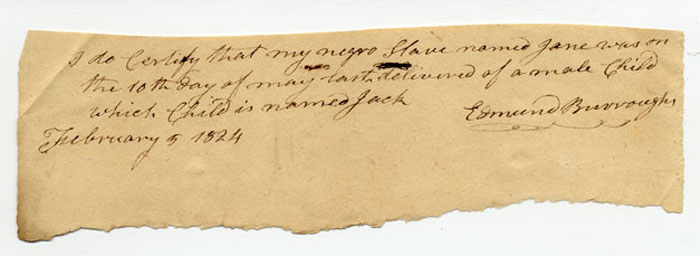 I do Certify that my negro Slave named Jane was on
the 10th Day of may last delivered of a male Child
which Child is named Jack
Edmund Burroughs
February 5 1824